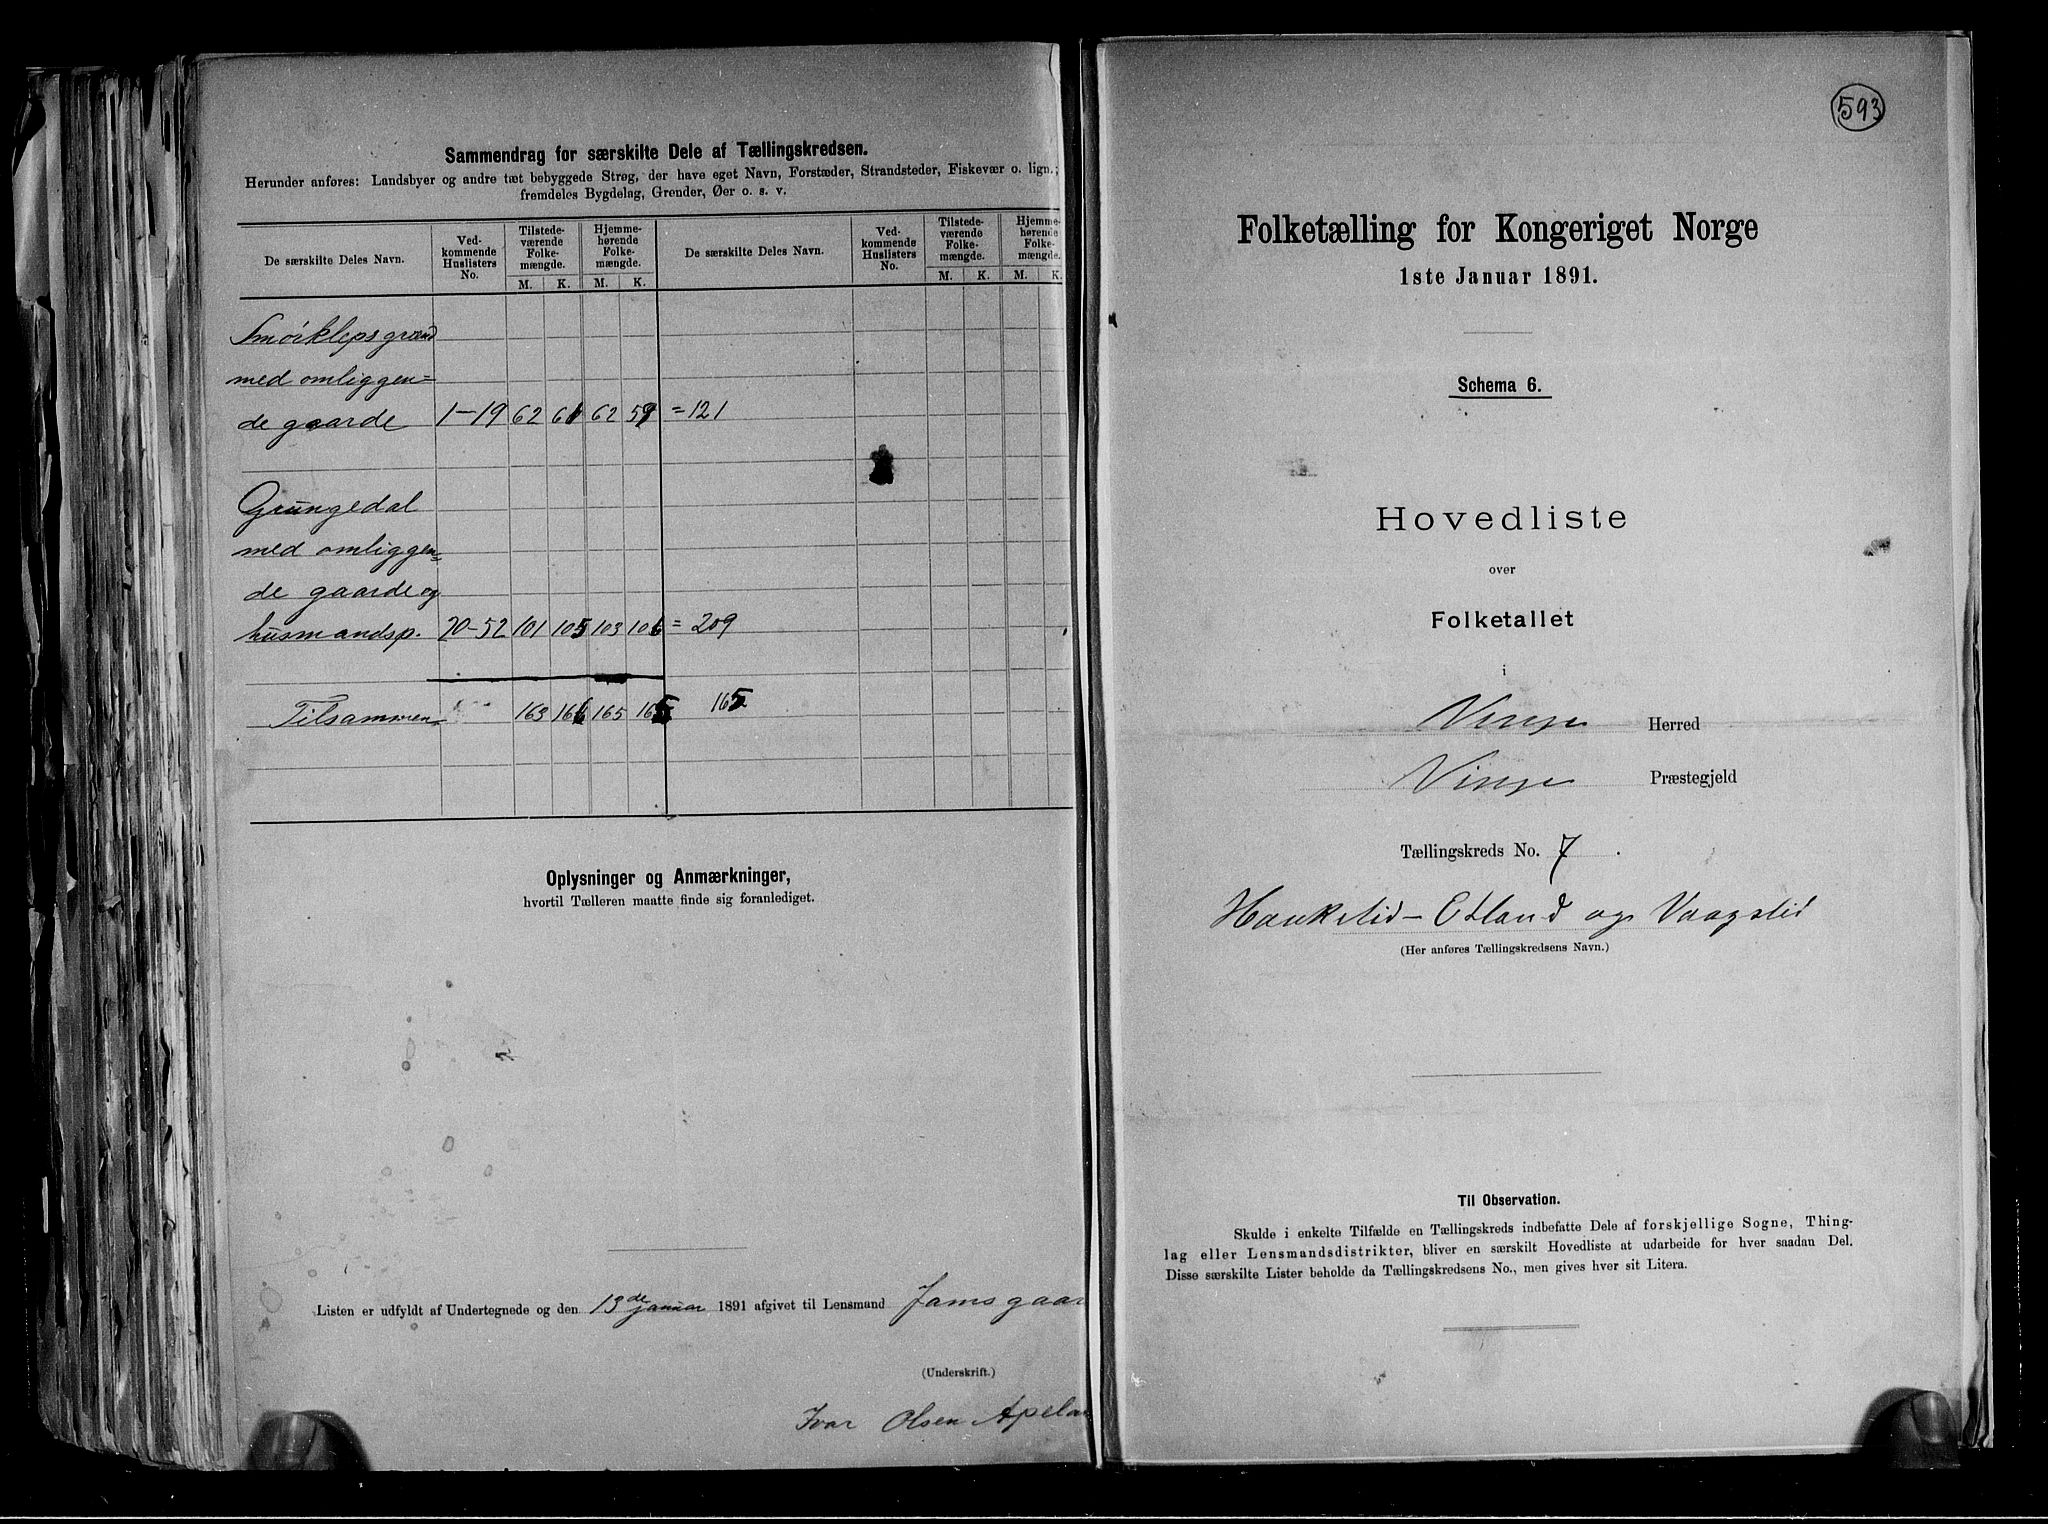 Sammendrag for særskilte Dele af Tællingskredsen.
Herunder anføres: Landsbyer og andre tæt bebyggede Strøg, der have eget Navn, Forstæder, Strandsteder, Fiskevær o. lign.;
fremdeles Bygdelag, Grender, Øer o. s. v.
De særskilte Deles Navn. Ved-kommende Huslisters No. Tilstede-værende Folke-mængde. Hjemme-hørende Folke-mængde. De særskilte Deles Navn. Ved-kommende Huslisters No. Tilstede-værende Folke-mængde. Hjemme-hørende Folke-mængde.
M. K. M. K. M. K. M. K.
Smörkleps grænd
med omliggen=
de gaarde 1-19 62 61 62 59 = 121
Grungedal
med omliggen=
de gaarde og
husmandsp. 20-52 101 105 103 106 = 209
Tilsammen 163 166 165 165 165
Oplysninger og Anmærkninger,
hvortil Tælleren maatte finde sig foranlediget.
Listen er udfyldt af Undertegnede og den 13de januar 1891 afgivet til Lensmand Jamsgaar
(Underskrift.)
Ivar Olsen Apelan
593
Folketælling for Kongeriget Norge
1ste Januar 1891.
Schema 6.
Hovedliste
over
Folketallet
i
Vinje Herred
Vinje Præstegjeld
Tællingskreds No. 7.
Haukelid-Edland og Vaagslid
(Her anføres Tællingskredsens Navn.)
Til Observation.
Skulde i enkelte Tilfælde en Tællingskreds indbefatte Dele af forskjellige Sogne, Thing-
lag eller Lensmandsdistrikter, bliver en særskilt Hovedliste at udarbeide for hver saadan Del.
Disse særskilte Lister beholde da Tællingskredsens No., men gives hver sit Litera.